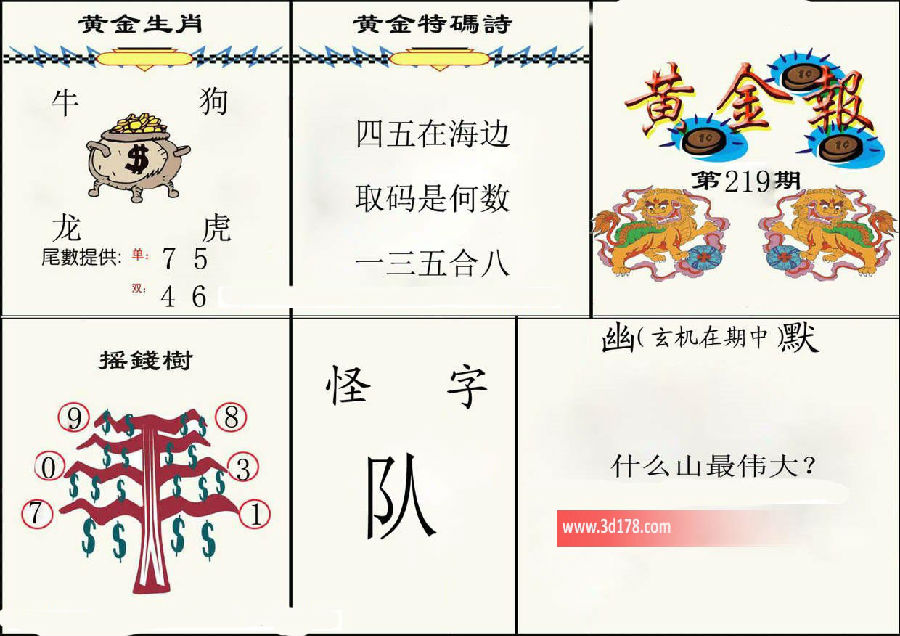 黄金生肖
牛 狗
$
龙 虎
尾數提供: 单: 7 5
双: 4 6
黄金特碼詩
四五在海边
取码是何数
一三五合八
黄金報
1¢
1¢
1¢
第219期
摇錢樹
9 8
0 3
7 1
$ $ $ $
$ $ $ $
$ $ $ $ $ $
$ $ $ $
怪字
队
幽(玄机在期中)默
什么山最伟大?
www.3d178.com